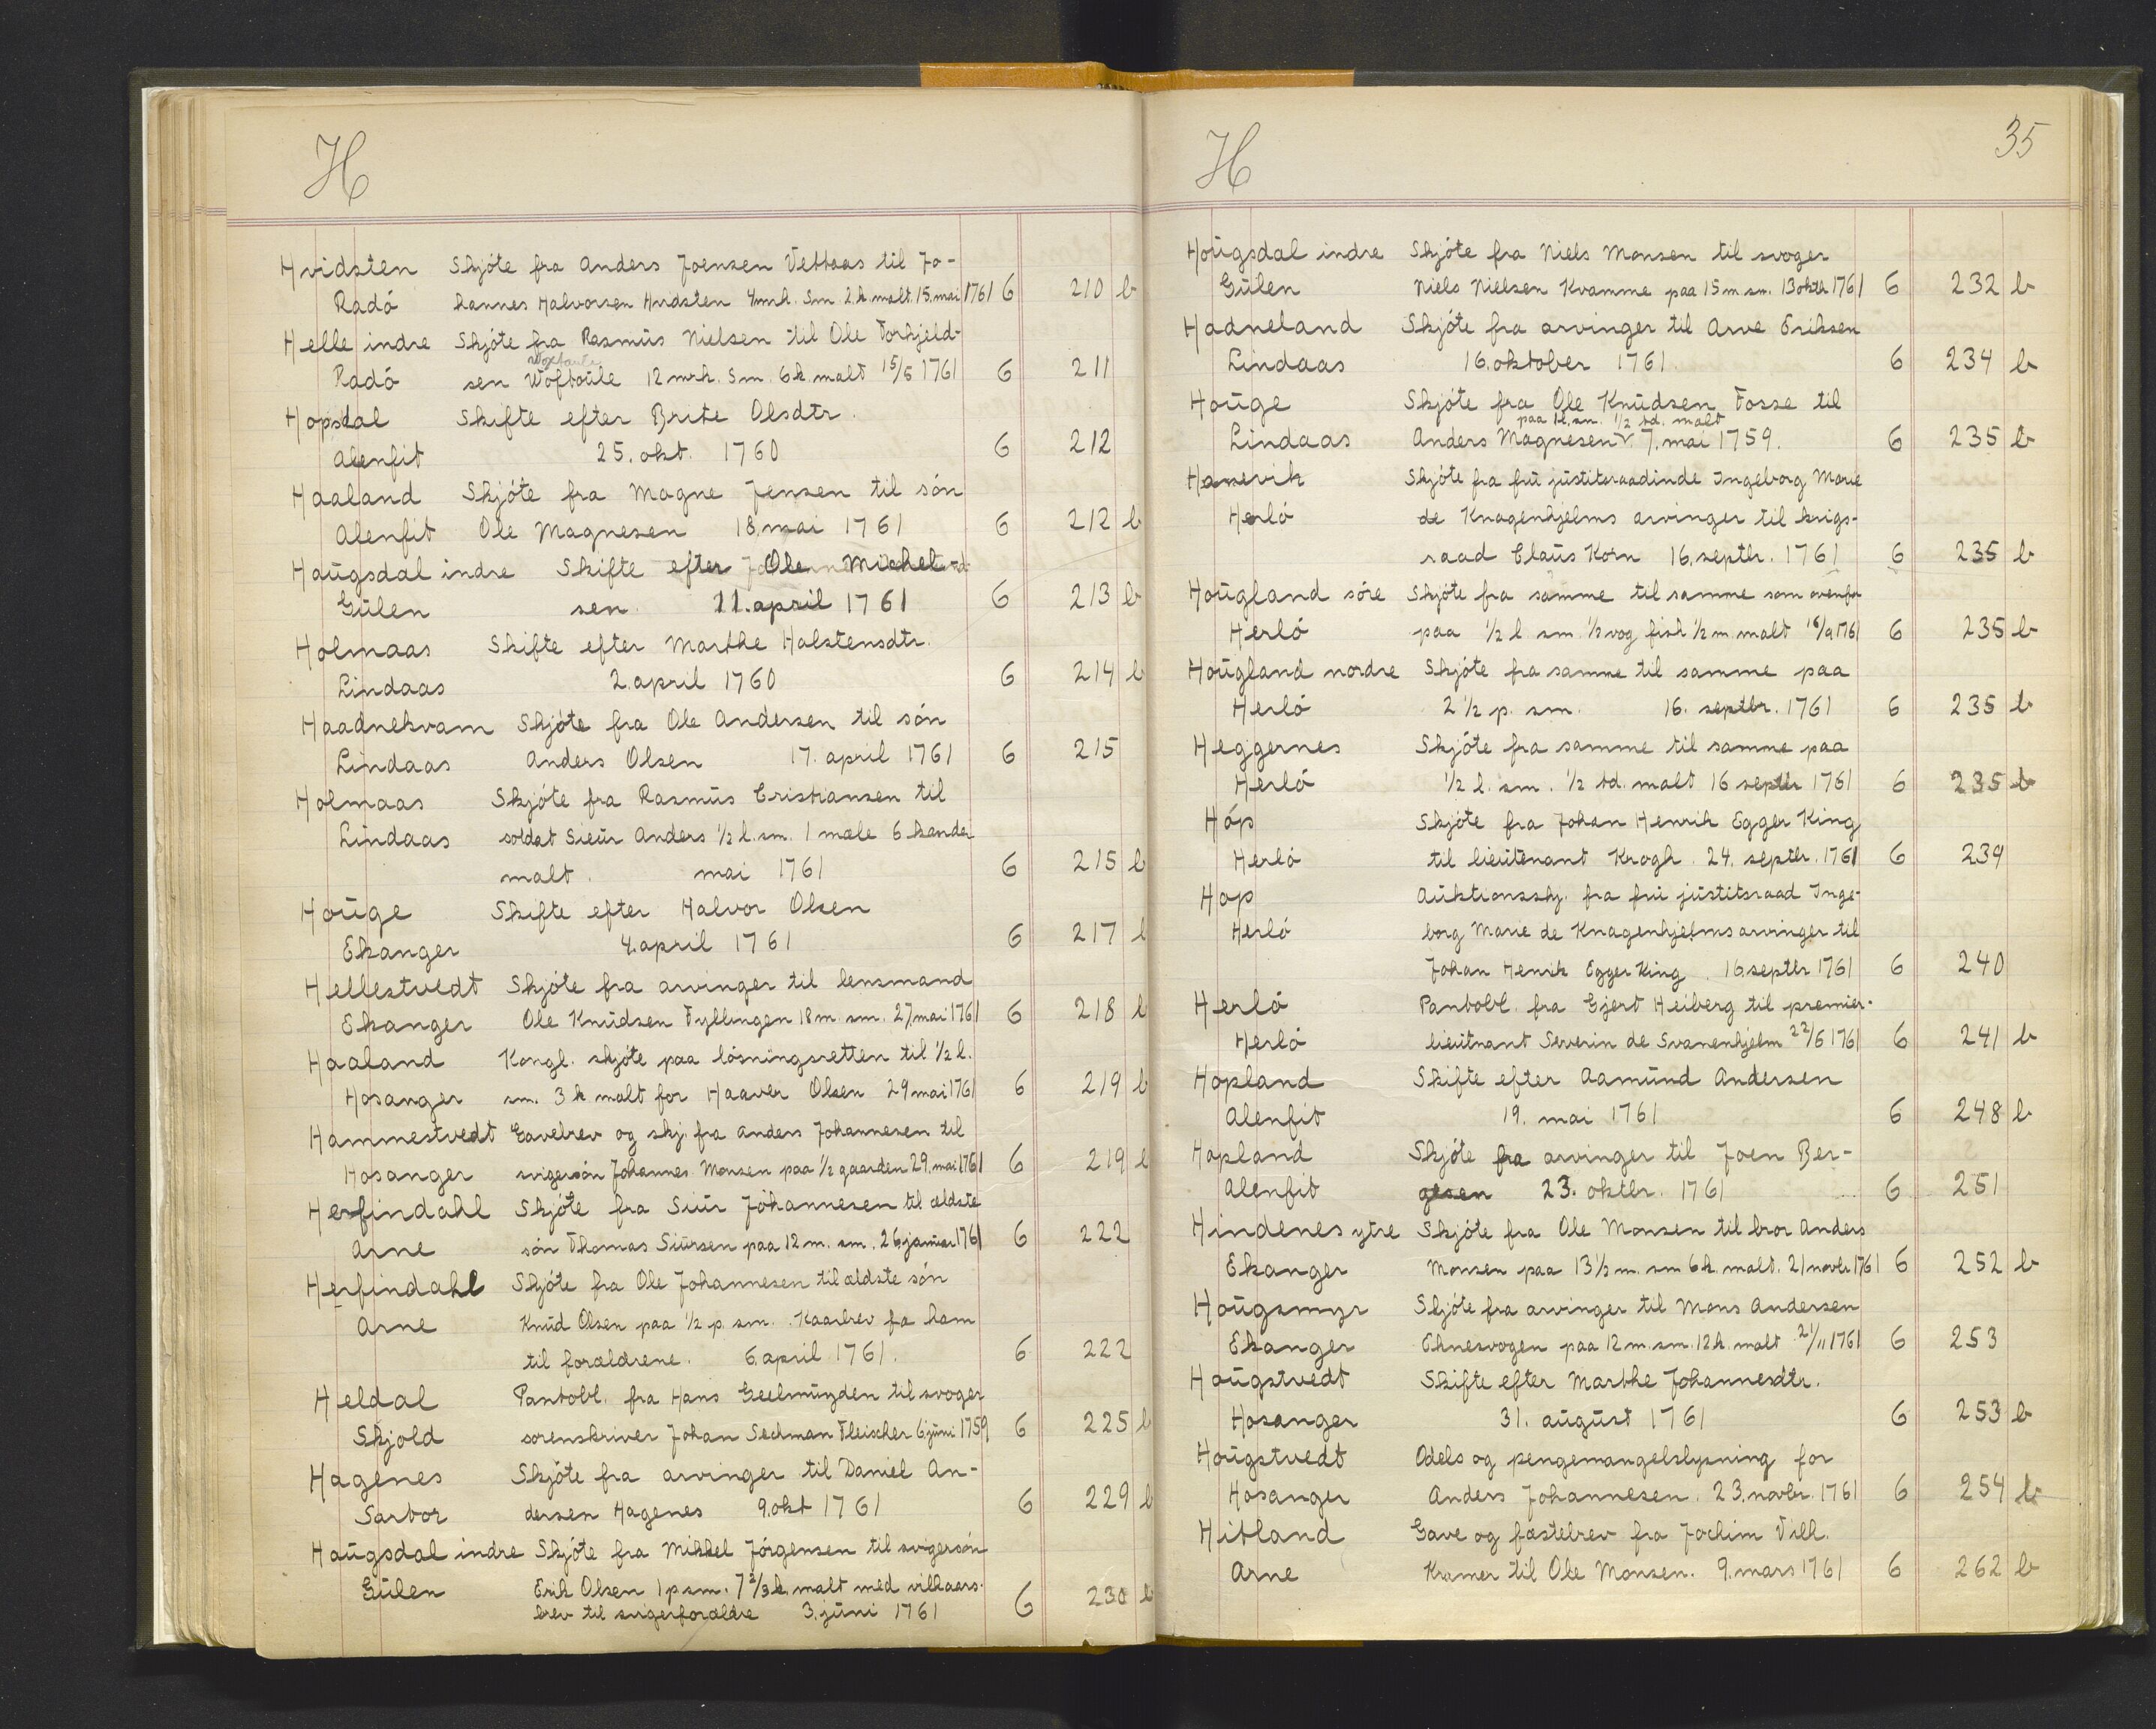 H
Hvidsten Skjóte fra Anders Joensen Vettaas til Jo-
Radó hannes Halvorsen Hvidsten 4mrk. Sm. 2.k.malt. 15.mai 1761 6 210 b
Helle indre Skjóte fra Rasmus Nielsen til Ole Torkjeld-
Radó sen Woftoule 12 mrk. Sm. 6k. malt 15/5 1761 6 211
Hopsdal Skifte efter Brite Olsdtr.
Alenfit 25. okt. 1760 6 212
Haaland Skjóte fra Magne Jensen til són
Alenfit Ole Magnesen 18. mai 1761 6 212 b
Haugsdal indre Skifte efter Ole Mickel-
Gulen sen. 11. april 1761 6 213 b
Holmaas Skifte efter Marthe Halstensdtr.
Lindaas 2. april 1760 6 214 b
Haadnekvam Skjóte fra Ole Andersen til són
Lindaas Anders Olsen 17. april 1761 6 215
Holmaas Skjóte fra Rasmus Cristiansen til
Lindaas soldat Sieur Anders 1/2 l. sm. 1 mæle 6 kander
malt. mai 1761 6 215 b
Houge Skifte efter Halvor Olsen
Ekanger 4. april 1761 6 217 b
Hellestvedt Skjóte fra arvinger til lensmand
Ekanger Ole Knudsen Fyllingen 18 m. sm. 27 mai 1761 6 218 b
Haaland Kongl. skjóte paa lósningsretten til 1/2 l.
Hosanger sm. 3 k malt for Haaver Olsen 29 mai 1761 6 219 b
Hammestvedt Gavebrev og skj. fra Anders Johannesen til
Hosanger svigersón Johannes Monsen paa 1/2 gaarden 29. mai 1761 6 219 b
Herfindahl Skjóte fra Siur Johannesen til ældste
Arne són Thomas Siursen paa 12 m. sm. 26. januar 1761 6 222
Herfindahl Skjóte fra Ole Johannesen til ældste són
Arne Knud Olsen paa 1/2 p. sm. Kaarbrev fa ham
til forældrene. 6. april 1761. 6 222
Heldal Pantobl. fra Hans Geelmuyden til svoger
Skjold sorenskriver Johan Sechman Fleischer 6 juni 1759 6 225 b
Hagenes Skjóte fra arvinger til Daniel An-
Sartor dersen Hagenes 9. okt 1761 6 229 b
Haugsdal indre Skjóte fra Mikkel Jórgensen til svigersón
Gulen Erik Olsen 1 p sm. 7 2/3 k. malt med vilkaars-
brev til svigerforældre 3. juni 1761 6 230 b
H 35
Hougsdal indre Skjóte fra Niels Monsen til svoger
Gulen Niels Nielsen Kvamme paa 15 m sm. 13 oktb 1761 6 232 b
Hadneland Skjóte fra arvinger til Arve Eriksen
Lindaas 16. oktober 1761 6 234 b
Houge Skjóte fra Ole Knudsen Fosse til
paa 1 l. sm. 1/2 td. malt
Lindaas Anders Magnesen 7. mai 1759. 6 235 b
Hanevik Skjóte fra fru justitsraadinde Ingeborg Marie
Herló de Knagenhjelms arvinger til krigs-
raad Claus Korn 16. septbr. 1761 6 235 b
Hougland sóre Skjóte fra samme til samme som ovenfor
Herló paa 1/2 l. sm. 1/2 vog fisk 1/2 m. malt 16/9 1761 6 235 b
Hougland nordre Skjóte fra samme til samme paa
Herló 2 1/2 p. sm. 16. septbr. 1761 6 235 b
Heggernes Skjóte fra samme til samme paa
Herló 1/2 l. sm. 1/2 td. malt 16 septbr 1761 6 235 b
Hóp Skjóte fra Johan Henrik Egger King
Herló til lieutenant Krogh. 24. septbr. 1761 6 239
Hop Auktionsskj. fra fru justitsraad Inge-
Herló borg Marie de Knagenhjelms arvinger til
Johan Henrik Egger King. 16 septbr 1761 6 240
Herló Pantobl. fra Gjert Heiberg til premier-
Herló lieutnant Severin de Svanenhjelm 22/6 1761 6 241 b
Hopland Skifte efter Aamund Andersen
Alenfit 19. mai 1761 6 248 b
Hopland Skjóte fra arvinger til Joen Ber-
Alenfit gesen 23. oktbr. 1761 6 251
Hindenes ytre Skjóte fra Ole Monsen til bror Anders
Ekanger Monsen paa 13 1/2 m. sm 6 k. malt. 21 novbr 1761 6 252 b
Hougsmyr Skjóte fra arvinger til Mons Andersen
Ekanger Eknesvogen paa 12 m. sm. 12 k. malt 21/11 1761 6 253
Hougstvedt Skifte efter Marthe Johannesdtr.
Hosanger 31. august 1761 6 253 b
Hougstvedt Odels og pengemangelslysning for
Hosanger Anders Johannesen. 23. novbr. 1761 6 254 b
Hitland Gave og fæstebrev fra Jochim Vilh.
Arne Kramer til Ole Monsen. 9. mars 1761 6 262 b